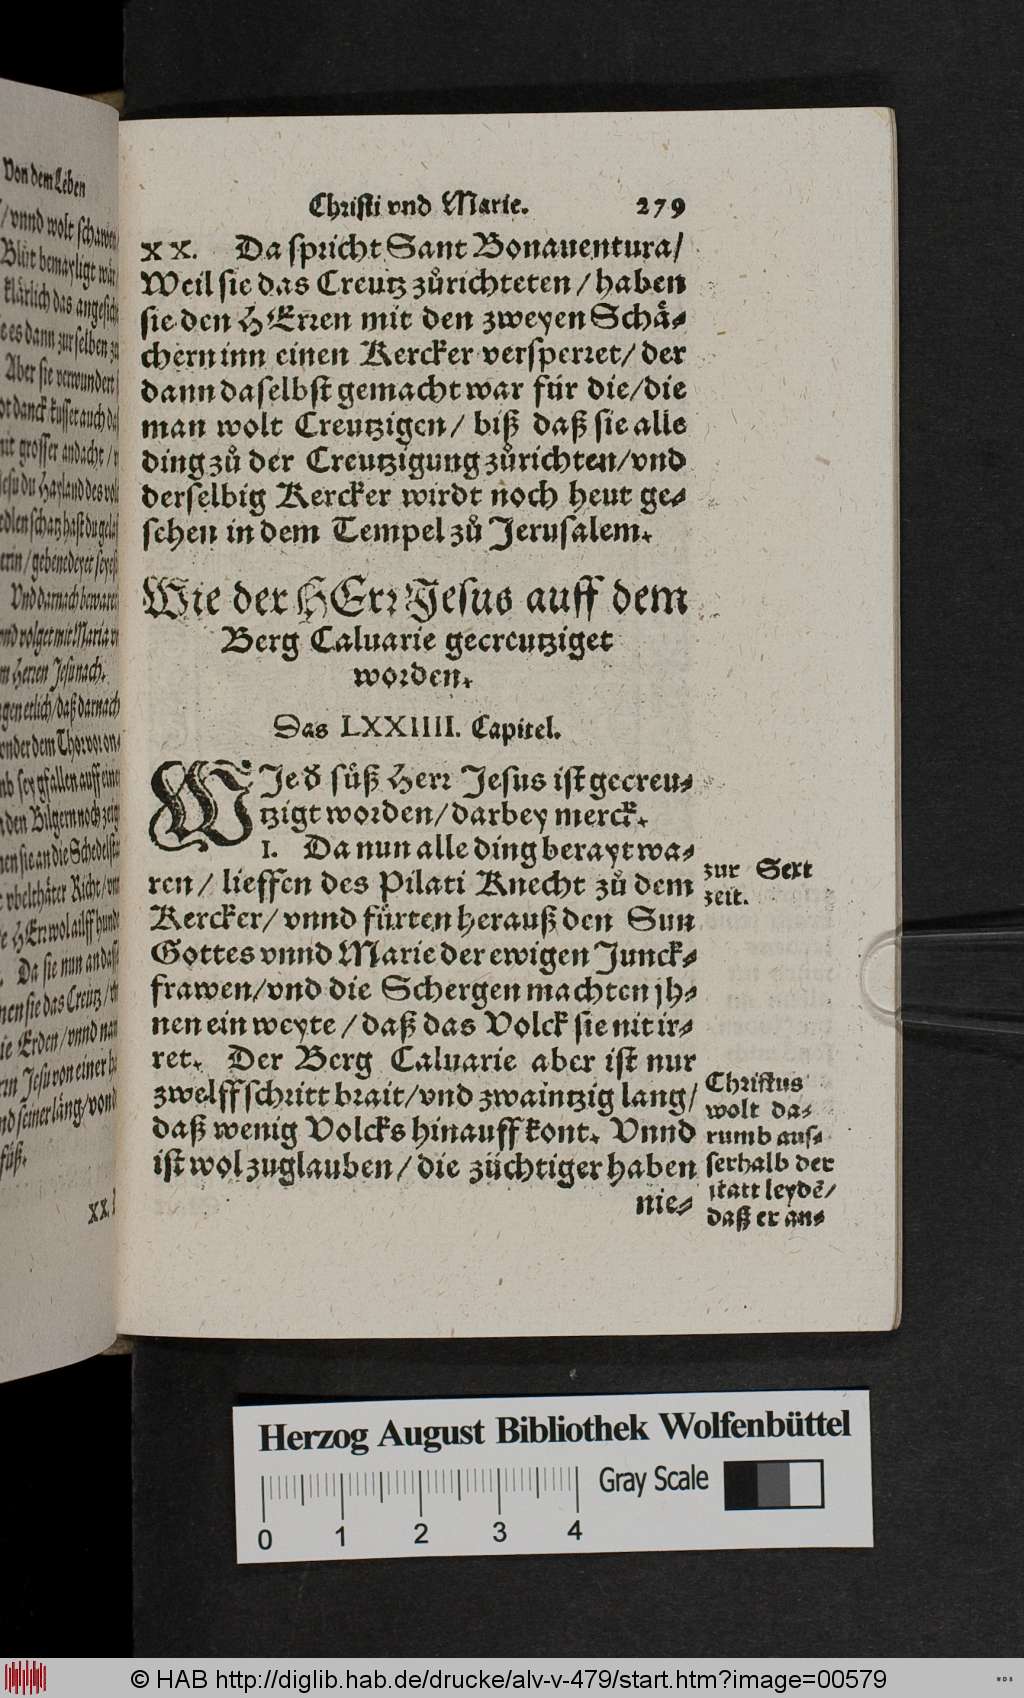 Von dem Leben
/ vnnd wolt schawen
Blůt bemayligt wär
klärlich das angesicht
e es dann zur selben zů
Aber sie verwundert
danck kusset auch da
mit grosser andacht /
Jesu du Hayland des vol
edlen schatz hast du gela
erin / gebenedeyet seyest
Vnd darnach bewaret
vnd volget mit Maria vn
m Herren Jesu nach.
gen etlich / daß darnach
vnder dem Thor von on⸗
vmb sey gfallen auff eine
den Bilgern noch zeig
nen sie an die Schedelstat
vbelthäter Richt / vnn
HErr wol ailff hundt
Da sie nun an dass
nen sie das Creutz /
ie Erden / vnnd nam
rrn Jesu von einer h
nd seiner läng / von d
füß.
XX.
Christi vnd Marie. 279
XX. Da spricht Sant Bonauentura /
Weil sie das Creutz zůrichteten / haben
sie den HErren mit den zweyen Schä⸗
chern inn einen Kercker versperret / der
dann daselbst gemacht war für die / die
man wolt Creutzigen / biß daß sie alle
ding zů der Creutzigung zůrichten / vnd
derselbig Kercker wirdt noch heut ge⸗
sehen in dem Tempel zů Jerusalem.
Wie der HErr Jesus auff dem
Berg Caluarie gecreutziget
worden.
Das LXXIIII. Capitel.
WJe d' süß Herr Jesus ist gecreu⸗
tzigt worden / darbey merck.
I. Da nun alle ding berayt wa⸗
ren / lieffen des Pilati Knecht zů dem
Kercker / vnnd fürten herauß den Sun
Gottes vnnd Marie der ewigen Junck⸗
frawen / vnd die Schergen machten jh⸗
nen ein weyte / daß das Volck sie nit ir⸗
ret. Der Berg Caluarie aber ist nur
zwelff schritt brait / vnd zwaintzig lang /
daß wenig Volcks hinauff kont. Vnnd
ist wol zuglauben / die züchtiger haben
nie⸗
zur Sext
zeit.
Christus
wolt da⸗
rumb aus⸗
serhalb der
statt leydē /
daß er an⸗
Herzog August Bibliothek Wolfenbüttel
Gray Scale
0 1 2 3 4
© HAB http://diglib.hab.de/drucke/alv-v-479/start.htm?image=00579